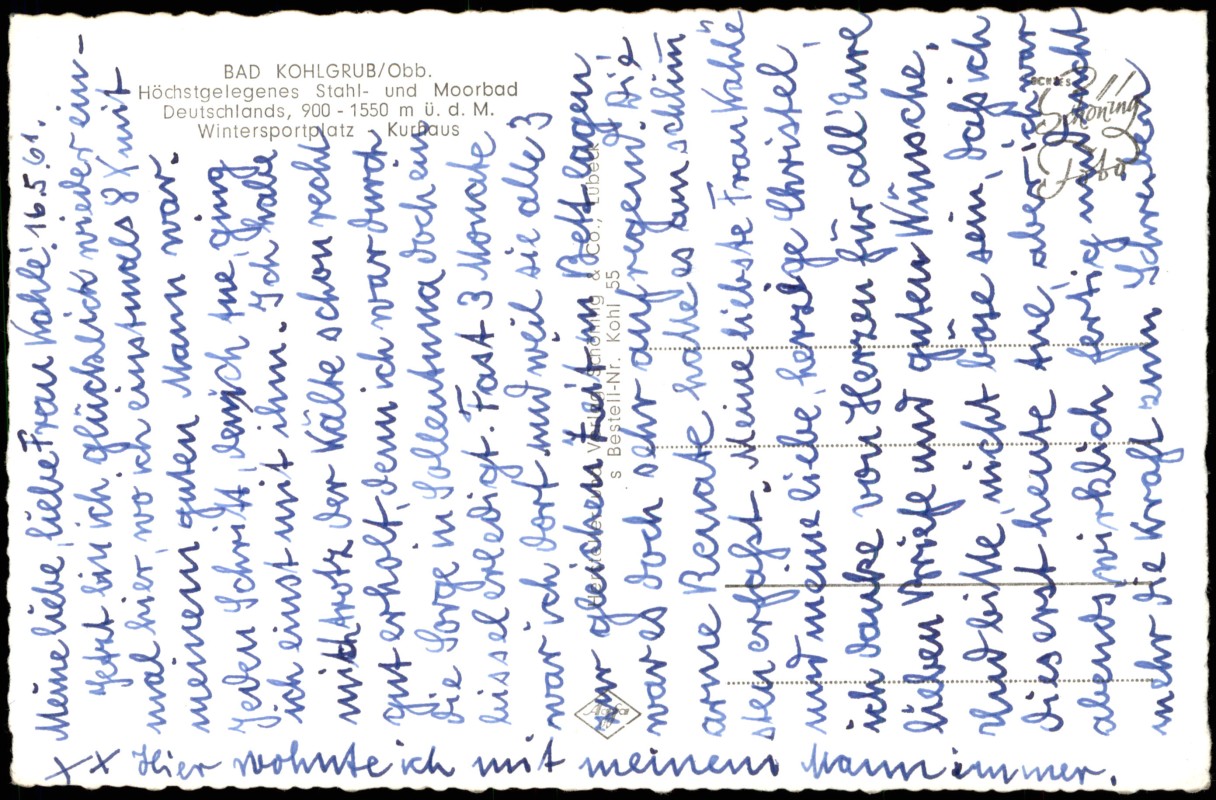 BAD KOHLGRUB/Obb.
Höchstgelegenes Stahl- und Moorbad
Deutschlands, 900 - 1550 m ü. d. M.
Wintersportplatz Kurhaus
Meine liebe, liebe Frau Wahle! 16.5.61.
Jetzt bin ich glücklich wieder ein-
mal hier, wo ich einstmals 8 X mit
meinem guten Mann war.
Jeden Schritt, den ich tue, ging
ich einst mit ihm. Ich habe
mich trotz der Kälte schon recht
gut erholt, denn ich war durch
die Sorge in Sollentuna doch ein
bissel erledigt. Fast 3 Monate
war ich dort und weil sie alle 3
zur gleichen Zeit im Bett lagen
war es doch sehr aufregend. Die
arme Renate hatte es am schlimm
sten erfaßt. Meine liebste Frau Wahle
und meine liebe, herzige Christel,
ich danke von Herzen für all' Eure
lieben Briefe und guten Wünsche.
Und bitte, nicht böse sein, daß ich
dies erst heute tue, aber ich war
abends wirklich fertig und nicht
mehr die Kraft zum Schreiben
XX Hier wohnte ich mit meinem Mann immer.
Verlag Schöning & Co., Lübeck
s Bestell-Nr. Kohl 55
Agfa
ECHTES
Schöning
Foto